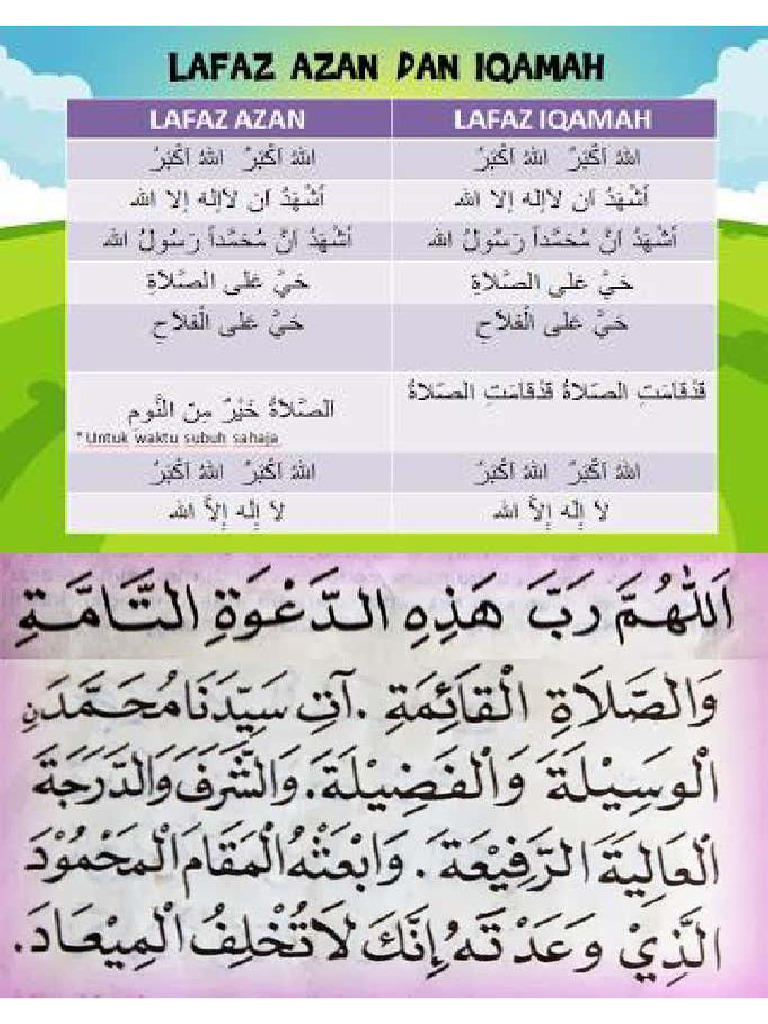 LAFAZ AZAN DAN IQAMAH
LAFAZ AZAN LAFAZ IQAMAH
اللهُ اَكْبَرُ اللهُ اَكْبَرُ اللهُ اَكْبَرُ اللهُ اَكْبَرُ
أَشْهَدُ اَن لاَإِلَه إِلا الله أَشْهَدُ اَن لاَإِلَه إِلا الله
أَشْهَدُ اَنَّ مُحَمَّداً رَسُولُ الله أَشْهَدُ اَنَّ مُحَمَّداً رَسُولُ الله
حَيَّ عَلَى الصَّلاَةِ حَيَّ عَلَى الصَّلاَةِ
حَيَّ عَلَى الْفَلاَحِ حَيَّ عَلَى الْفَلاَحِ
الصَّلاَةُ خَيْرٌ مِنَ النَّومِ قَدْقَامَتِ الصَلاَةُ قَدْقَامَتِ الصَلاَةُ
*Untuk waktu subuh sahaja
اللهُ اَكْبَرُ اللهُ اَكْبَرُ اللهُ اَكْبَرُ اللهُ اَكْبَرُ
لاَ إِلَه إِلاَّ الله لاَ إِلَه إِلاَّ الله
اَللّٰهُمَّ رَبَّ هَذِهِ الدَّعْوَةِ التَّامَّةِ
وَالصَّلاَةِ الْقَائِمَةِ. آتِ سَيِّدَنَا مُحَمَّدَنِ
الْوَسِيْلَةَ وَالْفَضِيْلَةَ. وَالشَّرَفَ وَالدَّرَجَةَ
الْعَالِيَةَ الرَّفِيْعَةَ. وَابْعَثْهُ الْمَقَامَ الْمَحْمُوْدَ
الَّذِيْ وَعَدْتَهُ إِنَّكَ لاَ تُخْلِفُ الْمِيْعَادَ.